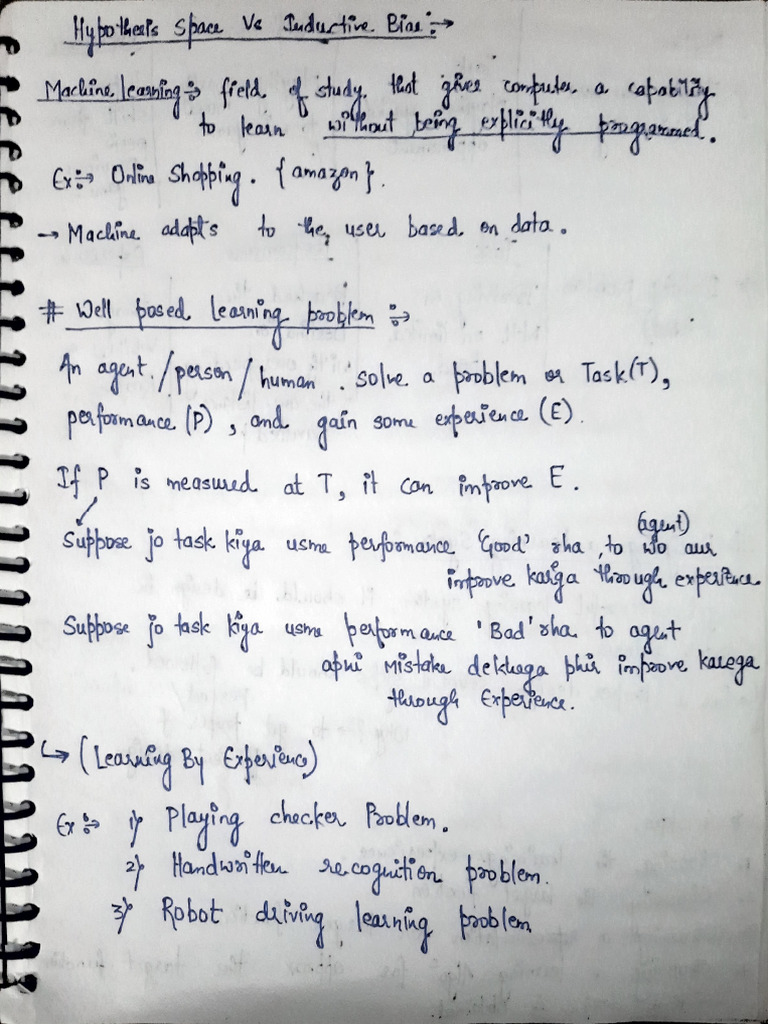 Hypothesis Space Vs Inductive Bias :→
Machine learning :→ field of study that gives computer a capability
to learn without being explicitly programmed.
Ex :→ Online Shopping. {amazon}.
→ Machine adapts to the user based on data.
# Well posed learning problem :→
An agent / person / human . solve a problem or Task(T),
performance (P) , and gain some experience (E).
If P is measured at T, it can improve E.
(agent)
Suppose jo task kiya usme performance 'Good' rha , to wo aur
improve karga through experience
Suppose jo task kiya usme performance 'Bad' rha to agent
apni mistake dekhaga phir improve karega
through Experience.
↳ (Learning By Experience)
Ex :→ 1) Playing checker Problem.
2) Handwritten recognition problem.
3) Robot driving learning problem